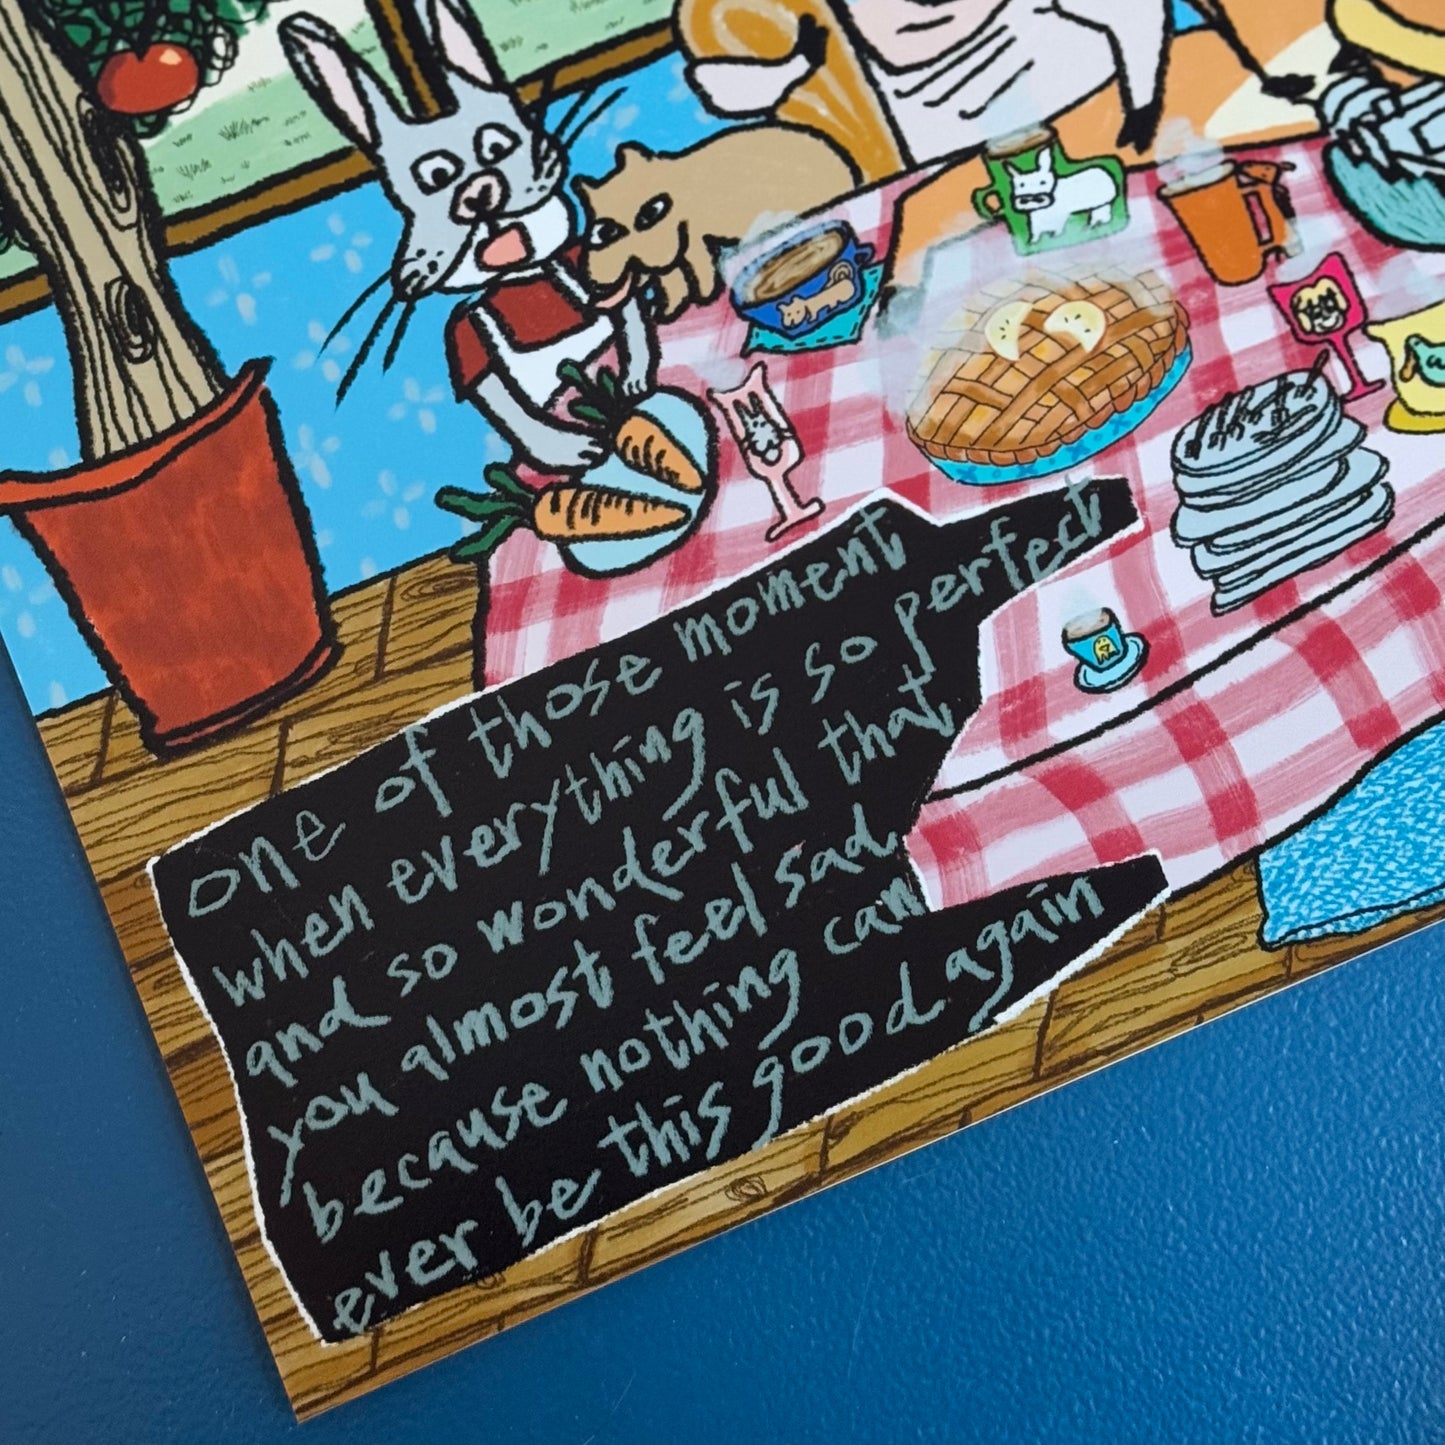 one of those moment
when everything is so perfect
and so wonderful that
you almost feel sad
because nothing can
ever be this good again